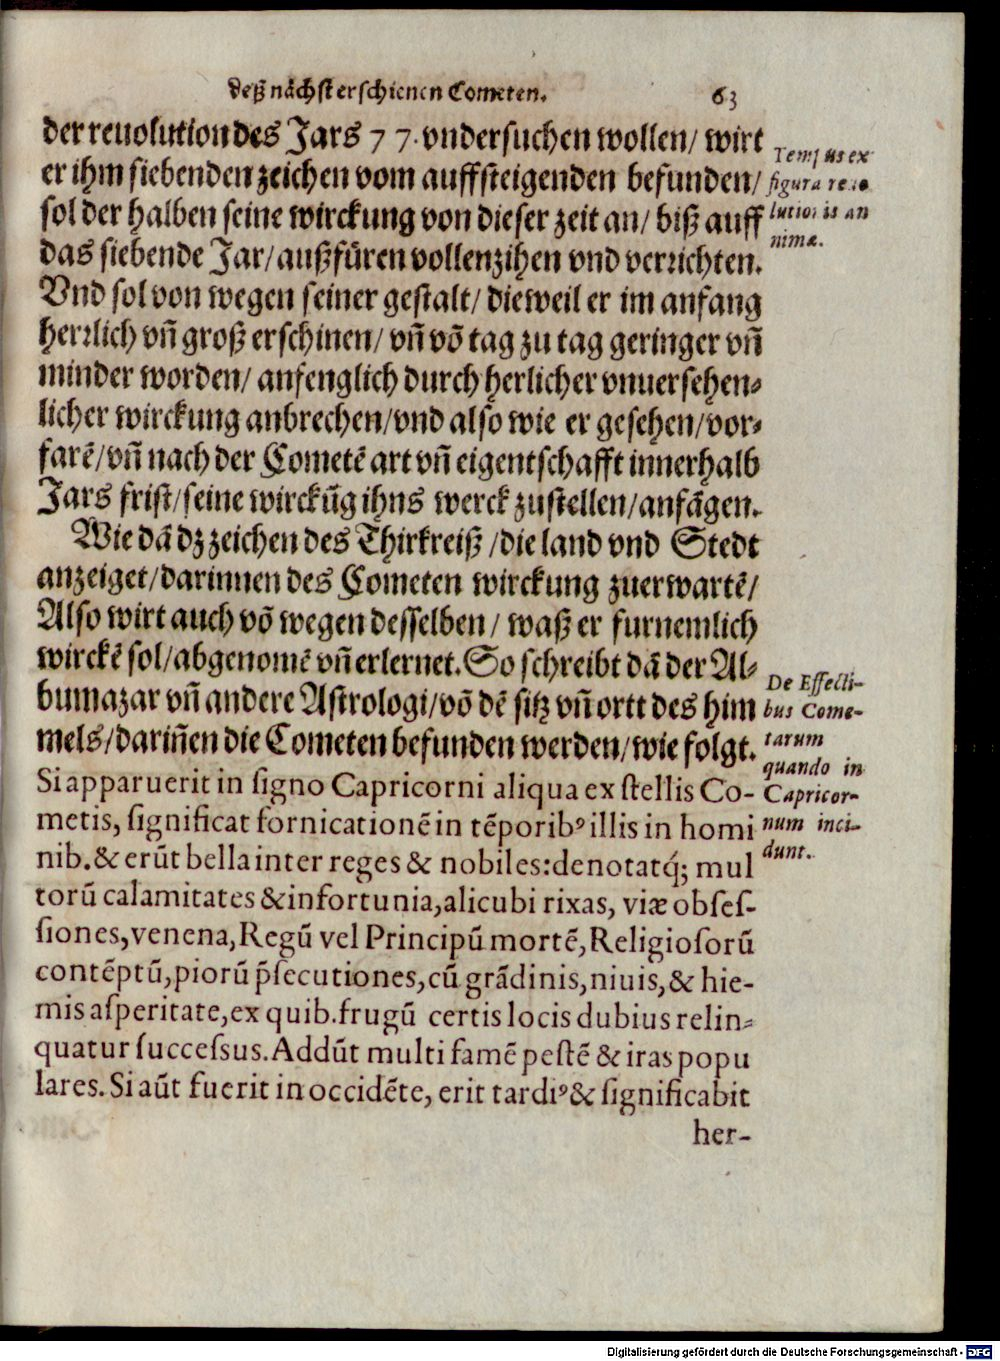 deß nächst erschienen Cometen. 63
der reuolution des Jars 77. vndersuchen wollen/ wirt
er ihm siebenden zeichen vom auffsteigenden befunden/
sol der halben seine wirckung von dieser zeit an/ biß auff
das siebende Jar/ außfüren vollenzihen vnd verrichten.
Vnd sol von wegen seiner gestalt/ dieweil er im anfang
herrlich vñ groß erschinen/ vñ võ tag zu tag geringer vñ
minder worden/ anfenglich durch herlicher vnuersehen-
licher wirckung anbrechen/ vnd also wie er gesehen/ vor-
farē/ vñ nach der Cometē art vñ eigentschafft innerhalb
Jars frist/ seine wirckũg ihns werck zustellen/ anfãgen.
Wie dã dz zeichen des Thirkreiß/ die land vnd Stedt
anzeiget/ darinnen des Cometen wirckung zuerwartē/
Also wirt auch võ wegen desselben/ waß er furnemlich
wirckē sol/ abgenomē vñ erlernet. So schreibt dã der Al-
bumazar vñ andere Astrologi/ võ dē sitz vñ ortt des him
mels/ dariñen die Cometen befunden werden/ wie folgt.
Si apparuerit in signo Capricorni aliqua ex stellis Co-
metis, significat fornicationē in tēporibꝰ illis in homi
nib. & erũt bella inter reges & nobiles: denotatq́; mul
torũ calamitates & infortunia, alicubi rixas, viæ obses-
siones, venena, Regũ vel Principũ mortē, Religiosorũ
contēptũ, piorũ p̃secutiones, cũ grãdinis, niuis, & hie-
mis asperitate, ex quib. frugũ certis locis dubius relin-
quatur successus. Addũt multi famē pestē & iras popu
lares. Si aũt fuerit in occidēte, erit tardiꝰ & significabit
her-
Tempus ex
figura reuo
lutionis an
nimæ.
De Effecti-
bus Come-
tarum
quando in
Capricor-
num inci-
dunt.
Digitalisierung gefördert durch die Deutsche Forschungsgemeinschaft - DFG